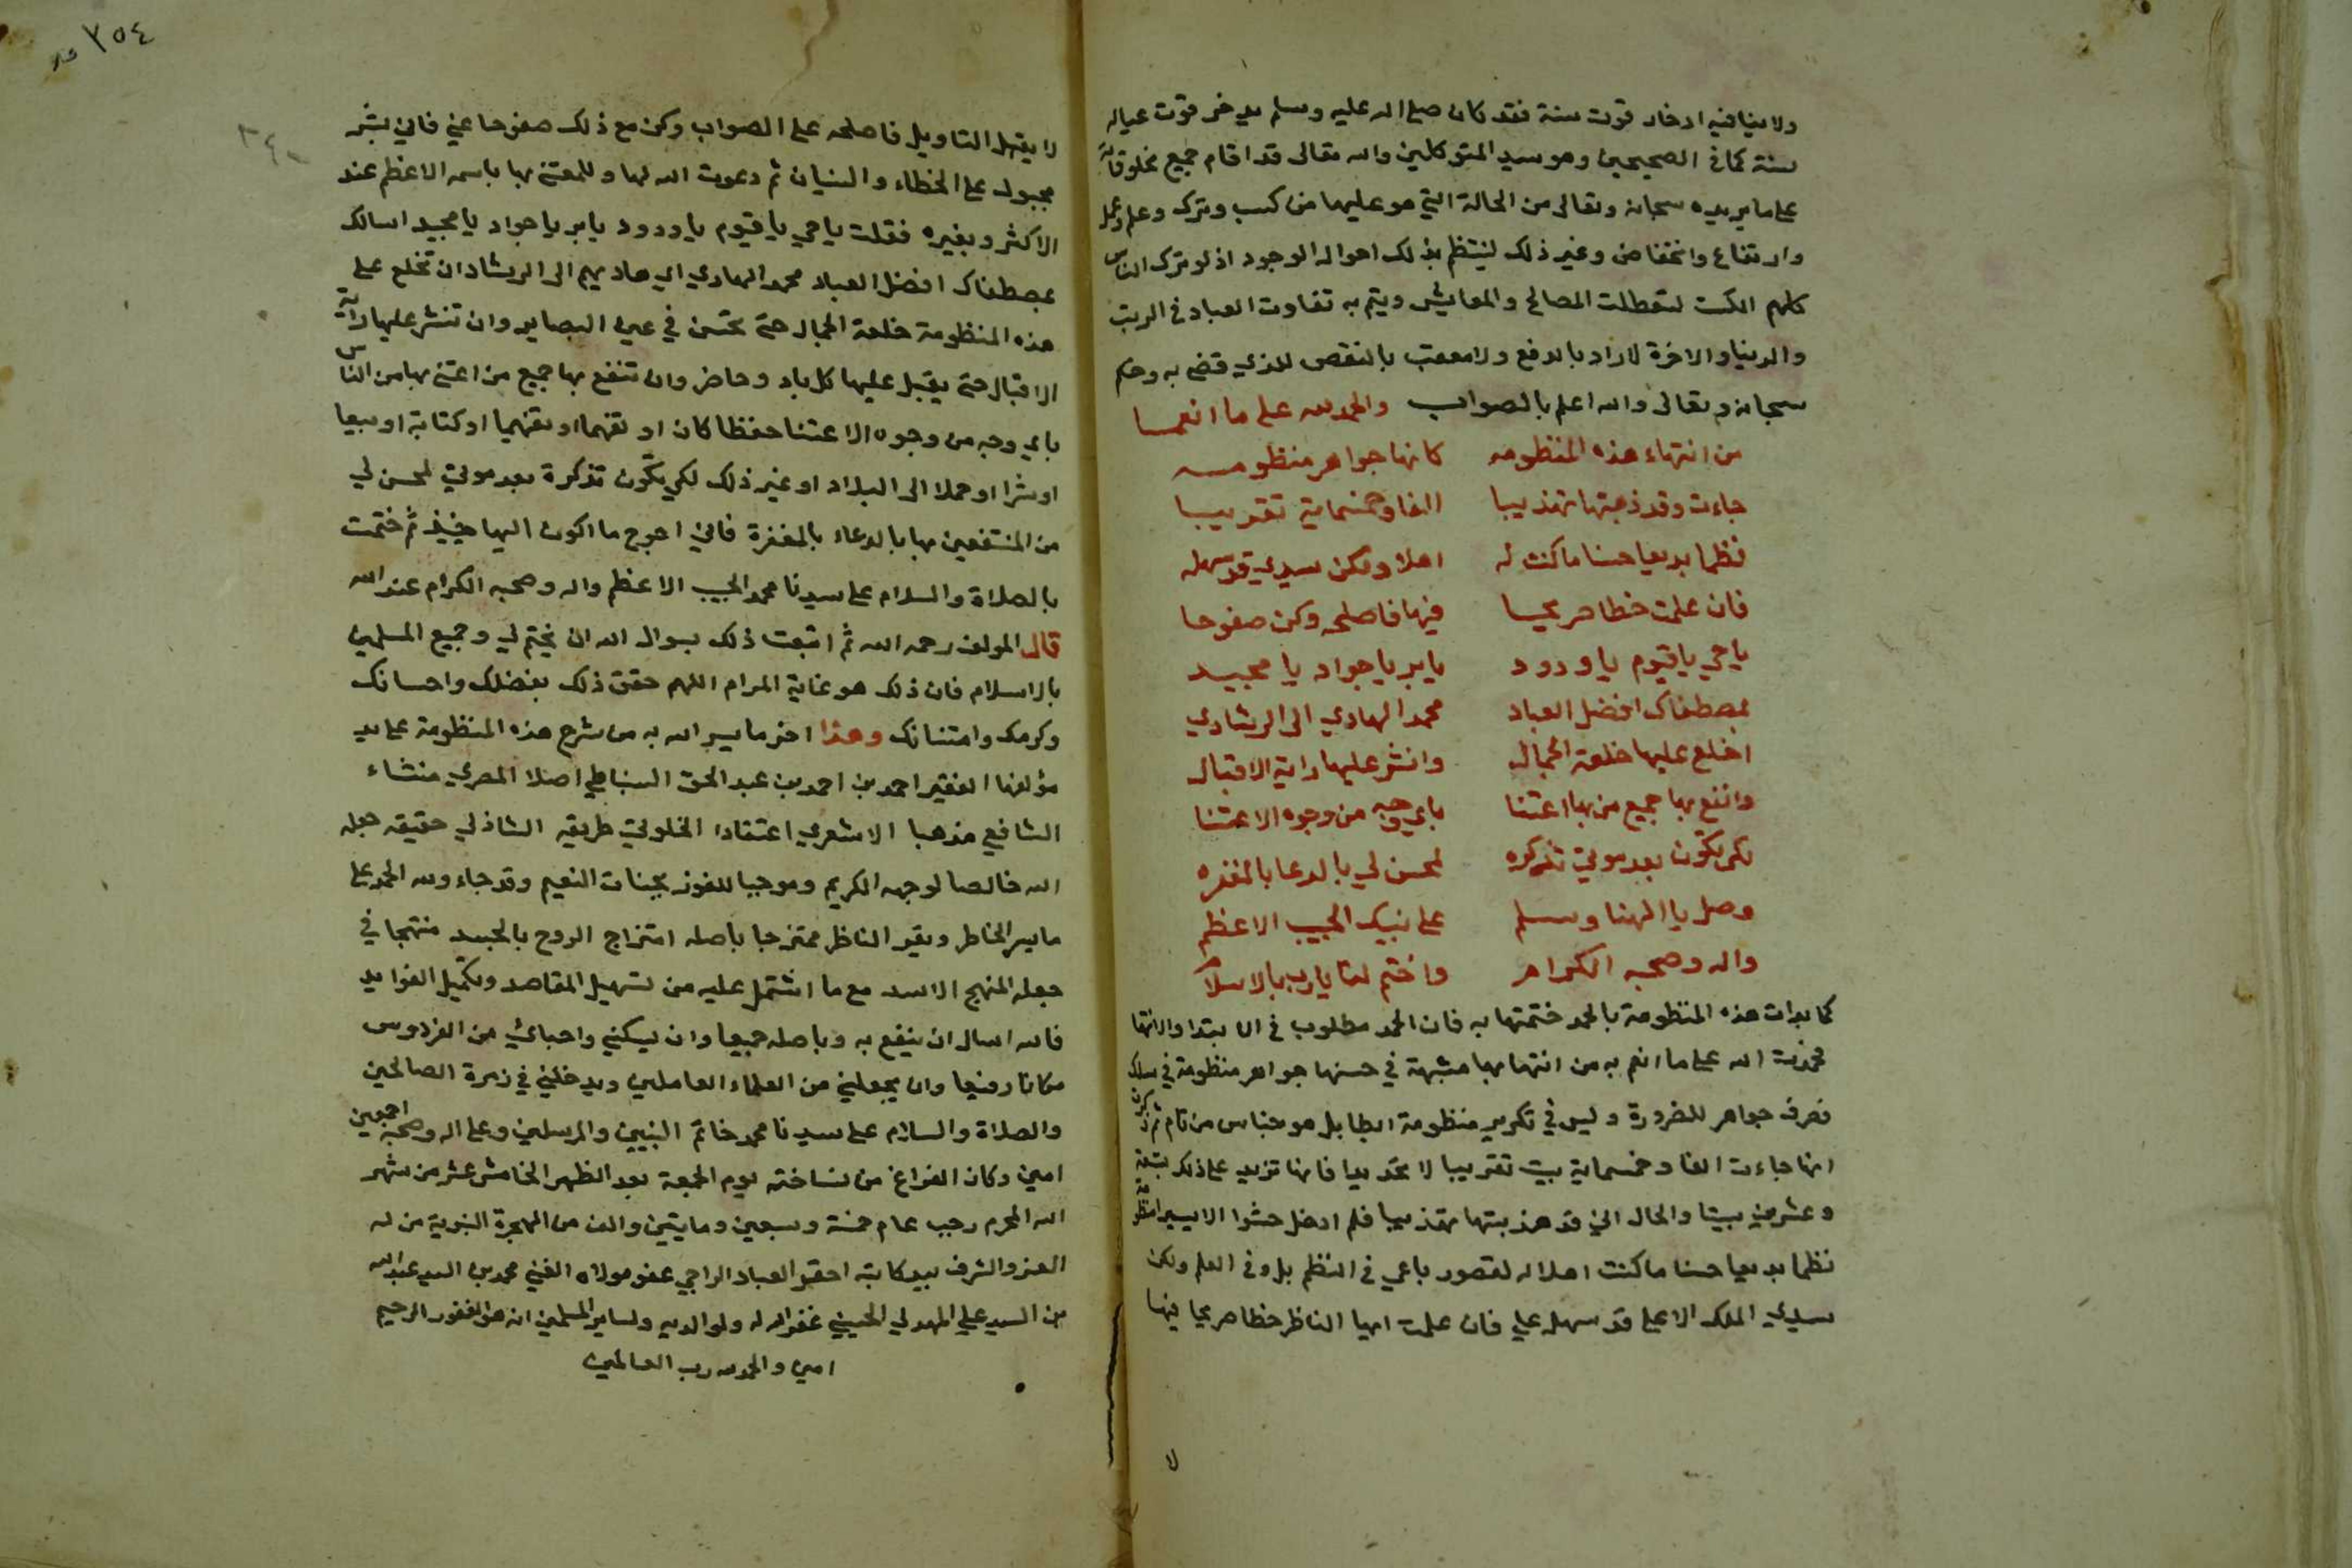 ولا ينافيه ادخار قوت سنة فقد كان صلى الله عليه وسلم يدخر قوت عياله
سنة كما في الصحيحين وهو سيد المتوكلين والله تعالى قد اقام جميع مخلوقاته
على ما يريده سبحانه وتعالى من الحالة التي هو عليها من كسب وترك وعلم وعمل
وارتفاع وانخفاض وغير ذلك لينتظم بذلك احوال الوجود اذ لو ترك الناس
كلهم الكسب لتعطلت المصالح والمعايش ويتم به تفاوت العباد في الرتب
والدنيا والاخرة لا راد بالدفع ولا معقب بالنقص للذي قضى به وحكم
سبحانه وتعالى والله اعلم بالصواب والحمد لله على ما انعما
من انتهاء هذه المنظومه كانها جواهر منظومه
جاءت وقد هذبتها تهذيبا الفا وخمسماية تقريبا
نظما بديعا حسنا ما كنت له اهلا ولكن سيدي قد سهله
فان علمت خطا صريحا فيها فاصلحه وكن صفوحا
يا حي يا قيوم يا ودود يا بر يا جواد يا مجيد
بمصطفاك افضل العباد محمد الهادي الى الرشادي
اخلع عليها خلعة الجمال وانشر عليها راية الاقبال
وانفع بها جميع من بها اعتنا باي وجه من وجوه الاعتنا
لكي تكون بعد موتي تذكره لمحسن لي بالدعا بالمغفره
وصل يا الهنا وسلم على نبيك الحبيب الاعظم
واله وصحبه الكرام واختم لنا يا رب بالاسلام
كما بدات هذه المنظومة بالحمد ختمتها به فان الحمد مطلوب في الابتدا والانتها
فحمدت الله على ما انعم به من انتهايها مشبهة في حسنها جواهر منظومة في سلك
فصرف جواهر للضرورة وليس في تكرير منظومة ايطا بل هو جناس من تام ثم ذكرت
انها جاءت الفا وخمسماية بيت تقريبا لا تحديدا فانها تزيد على ذلك بتسعة
وعشرين بيتا والحال اني قد هذبتها تهذيبا فلم ادخل حشوا الا يسيرا
نظما بديعا حسنا ما كنت اهلا له لقصور باعي في النظم بل وفي العلم ولكن
سيدي الملك الاعلى قد سهله علي فان علمت ايها الناظر خطا صريحا فيها
لا
٣٥٤
٣٤٠
لا يقبل التاويل فاصلحه على الصواب وكن مع ذلك صفوحا عني فاني بشر
مجبول على الخطاء والنسيان ثم دعوت الله لها وللمعتني بها باسمه الاعظم عند
الاكثر وبغيره فقلت يا حي يا قيوم يا ودود يا بر يا جواد يا مجيد اسالك
بمصطفاك افضل العباد محمد الهادي اي هاديهم الى الرشاد ان تخلع على
هذه المنظومة خلعة الجمال حتى تحسن في عين البصاير وان تنشر عليها راية
الاقبال حتى يقبل عليها كل باد وحاضر وان تنفع بها جميع من اعتنى بها من الناس
باي وجه من وجوه الاعتنا حفظا كان او تفهما او تفهيما او كتابة او بيعا
او شرا او حملا الى البلاد او غير ذلك لكي تكون تذكرة بعد موتي لمحسن لي
من المنتفعين بها بالدعاء بالمغفرة فاني احوج ما اكون اليها حينيذ ثم ختمت
بالصلاة والسلام على سيدنا محمد الحبيب الاعظم واله وصحبه الكرام عند الله
قال المولف رحمه الله ثم اتبعت ذلك بسوال الله ان يختم لي وجميع المسلمين
بالاسلام فان ذلك هو غاية المرام اللهم حقق ذلك بفضلك واحسانك
وكرمك وامتنانك وهذا اخر ما يسر الله به من شرح هذه المنظومة على يد
مؤلفها الفقير احمد بن احمد بن عبد الحق السنباطي اصلا المصري منشاء
الشافعي مذهبا الاشعري اعتقادا الخلوتي طريقه الشاذلي حقيقه جعله
الله خالصا لوجهه الكريم وموجبا للفوز بجنات النعيم وقد جاء ولله الحمد على
ما يسر الخاطر ويقر الناظر ممتزجا باصله امتزاج الروح بالجسد منتهجا في
حله المنهج الاسد مع ما اشتمل عليه من تسهيل المقاصد وتكميل الفوايد
فالله اسال ان ينفع به وباصله جميعا وان يسكنني واحبائي من الفردوس
مكانا رفيعا وان يجعلني من العلماء العاملين ويدخلني في زمرة الصالحين
والصلاة والسلام على سيدنا محمد خاتم النبيين والمرسلين وعلى اله وصحبه اجمعين
امين وكان الفراغ من نساخته يوم الجمعة بعد الظهر الخامس عشر من شهر
الله المحرم رجب عام خمسة وسبعين ومايتين والف من الهجرة النبوية من له
العز والشرف بيد كاتبه احقر العباد الراجي عفو مولاه الغني محمد بن السيد عبد الله
بن السيد علي المهدلي الحسيني غفر الله له ولوالديه ولساير المسلمين انه هو الغفور الرحيم
امين والحمد لله رب العالمين